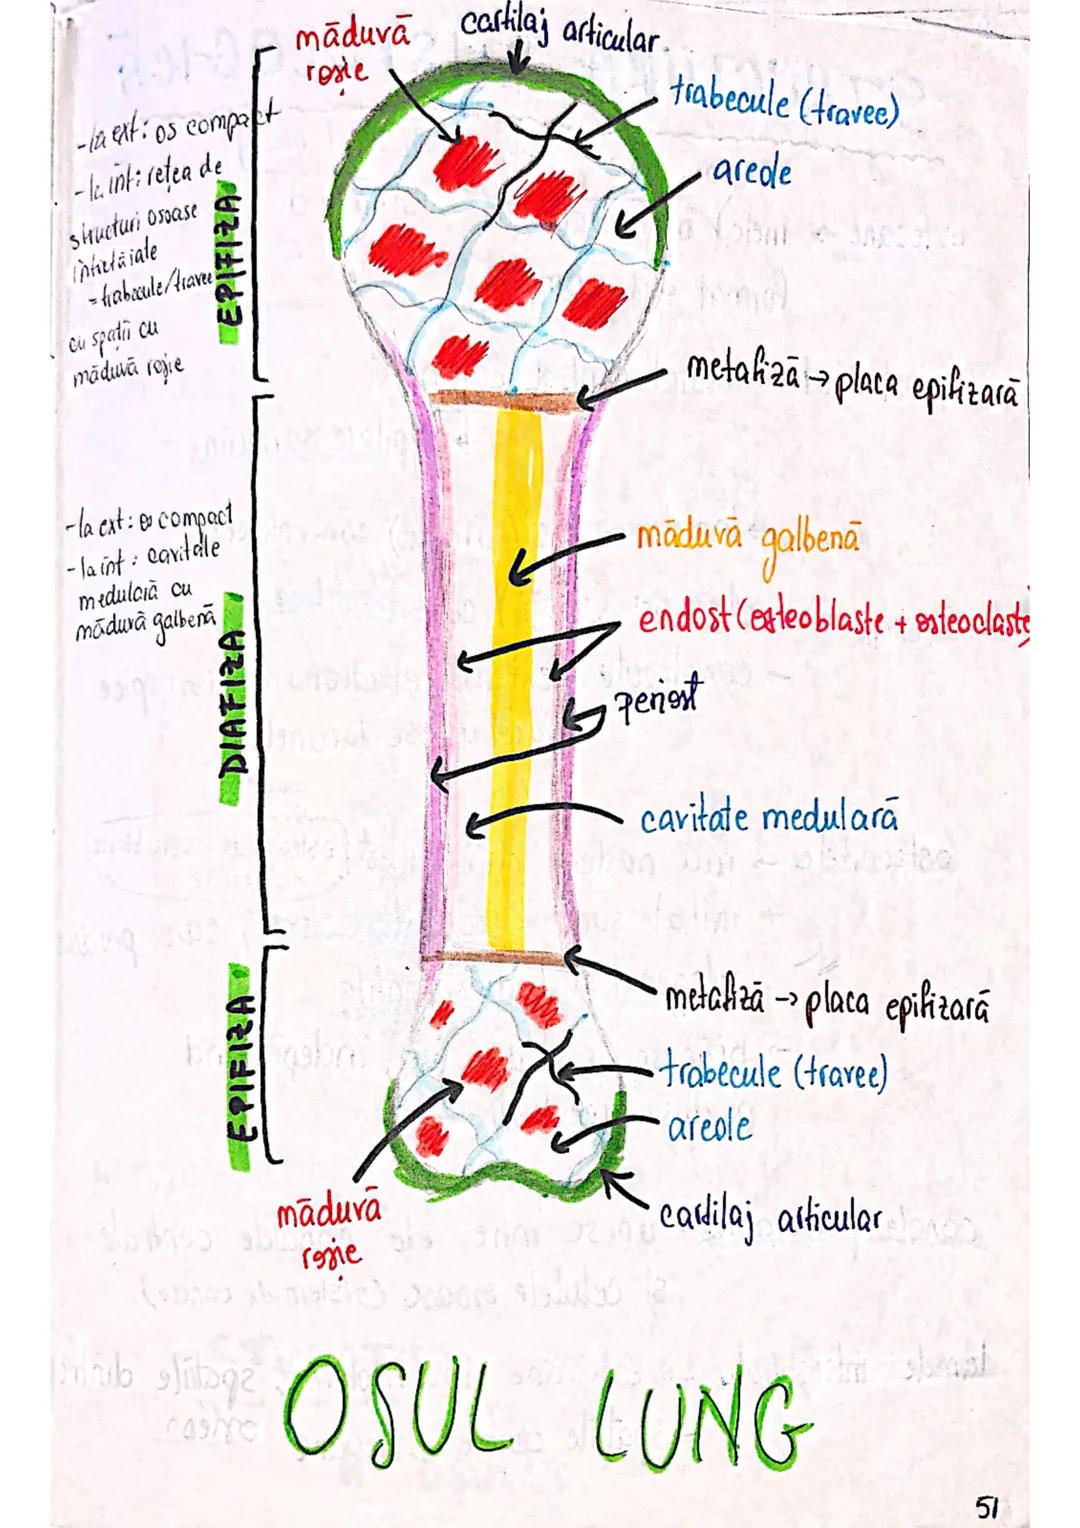 măduvă
roșie
cartilaj articular
trabecule (travee)
areole
-la ext: os compact
-la int: rețea de
structuri osoase
întretăiate
=trabecule/travee
cu spații cu
măduvă roșie
EPIFIZA
metafiză → placa epifizară
-la ext: os compact
-la int: cavitate
medulară cu
măduvă galbenă
DIAFIZA
măduvă galbenă
endost (osteoblaste + osteoclaste)
periost
cavitate medulară
metafiză → placa epifizară
EPIFIZA
trabecule (travee)
areole
măduvă
roșie
cartilaj articular
OSUL LUNG
51